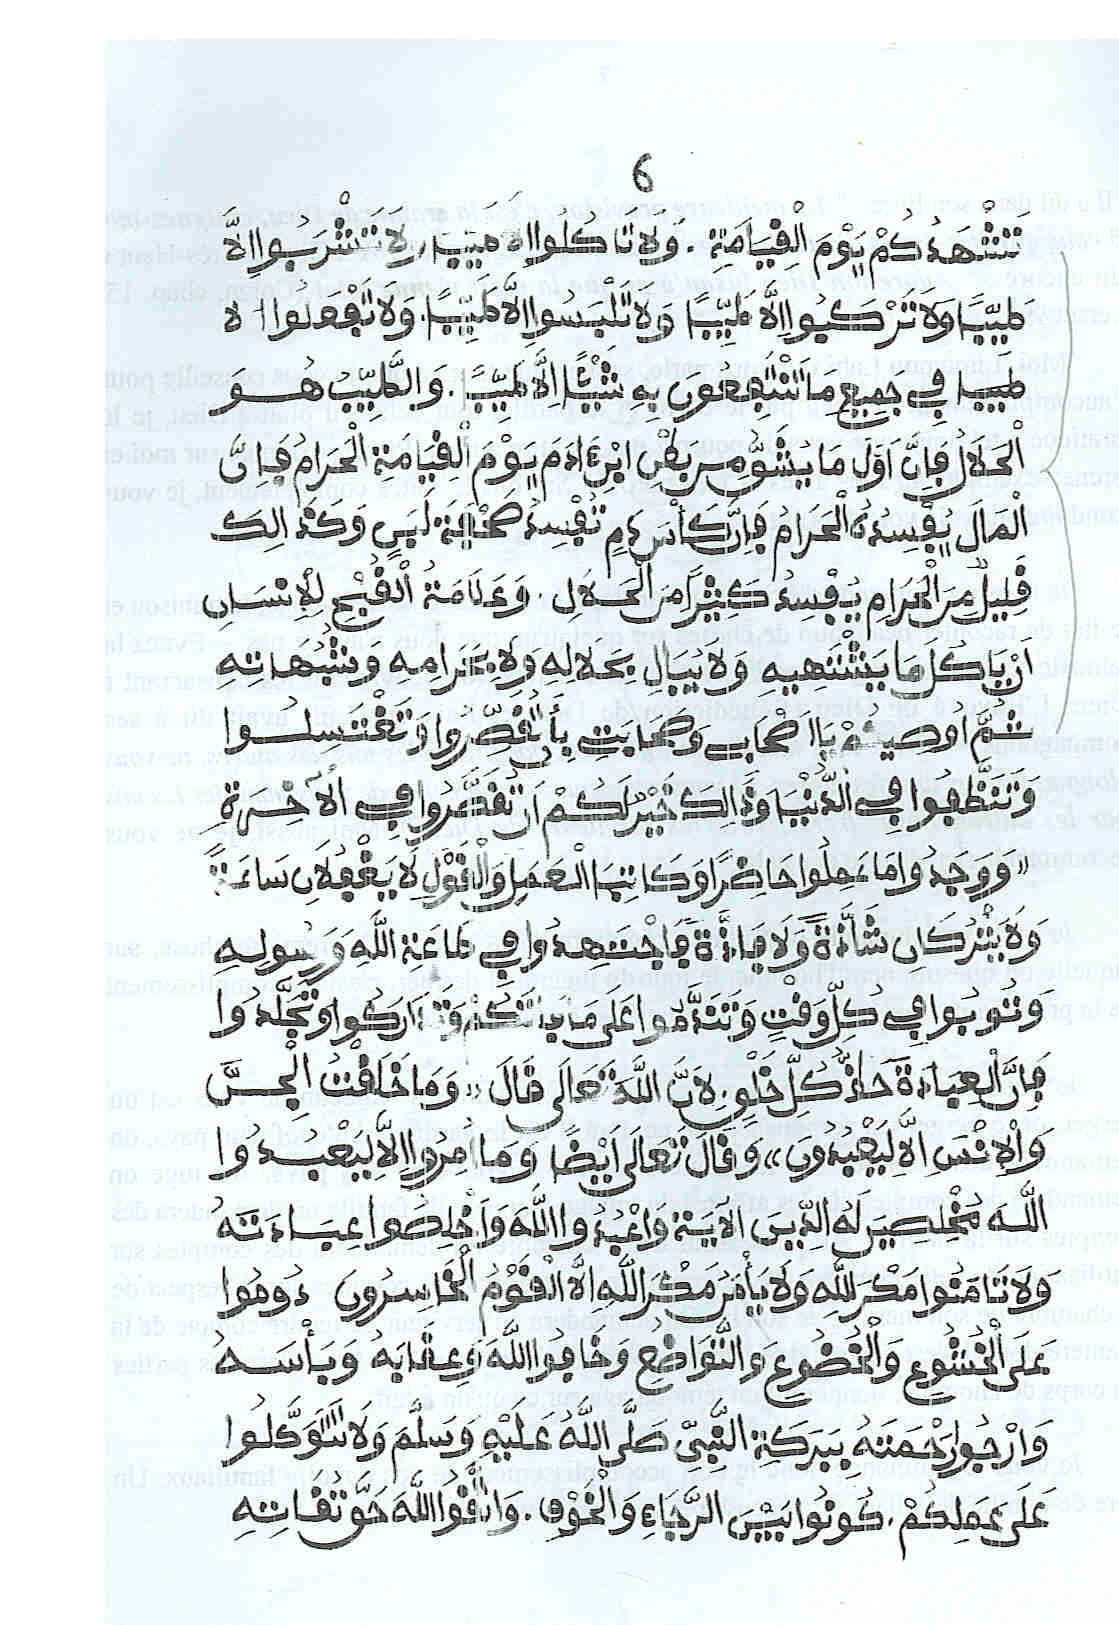 6
تَشْهَدُكُمْ يَوْمَ الْقِيَامَةِ . وَلَا تَاكُلُوا إِلَّا طَيِّبًا، لَا تَشْرَبُوا إِلَّا
طَيِّبًا وَلَا تَرْكَبُوا إِلَّا طَيِّبًا وَلَا تَلْبَسُوا إِلَّا طَيِّبًا. وَلَا تَفْعَلُوا إلا
طيبا في جَمِيعِ مَا تَنْتَفِعُونَ بِهِ شَيْئًا إِلَّا طَيِّبًا . وَالطَّيِّبُ هُوَ
الْحَلَالُ فَإِنَّ أَوَّلَ مَا يَشُقُّ مِن بَطْنِ ابْنِ ءَادَمَ يَوْمَ الْقِيَامَةِ الْحَرَامُ فَإِنَّ
الْمَالَ يُفْسِدُهُ الْحَرَامُ فَإِنَّ كَأْسَ دَمٍ تُفْسِدُ لَبَنٍ وَكَذَالِكَ
قَلِيلٌ مِّنَ الْحَرَامِ يُفْسِدُ كَثِيرًا مِّنَ الْحَلَالِ . وَعَلَامَةُ الْقُبْحِ لِلْإِنسَانِ
أَنْ يَاكُلَ مَا يَشْتَهِيهِ وَلَا يُبَالِ بِحَلَالِهِ وَلَا بِحَرَامِهِ وشُبُهَاتِهِ
ثُمَّ أُوصِيكُمْ يَا أَصْحَابِي وَصَحَابَتِ بِأَنْ تَغْتَسِلُوا
وَتَتَنَظَّفُوا فِي الدُّنْيَا وَذَالِكَ خَيْرٌ لَكُمْ أَن تُفَكِّرُوا فِي الْأَخِرَةِ
«وَوَجَدُوا مَا عَمِلُوا حَاضِرًا وَكَاتِبَا الْعَمَلِ وَالْقَوْلِ لَا يَغْفُلَانِ سَاعَةً
وَلَا يَتْرُكَانِ شَاذَّةً وَلَا فَاذَّةً فَاجْتَهِدُوا فِي طَاعَةِ اللَّهِ وَرَسُولِهِ
وَتُوبُوا فِي كُلِّ وَقْتٍ وَتَنَدَّمُوا عَلَى وَتَدَارَكُوا وَتَجَلَّدُوا
فَإِنَّ الْعِبَادَةَ كُلِّ لِأَنَّ اللَّهَ تَعَالَى قَالَ «وَمَا خَلَقْتُ الْجِنَّ
وَالْإِنْسَ إِلَّا لِيَعْبُدُونِ» وَقَالَ تَعَالَى أَيْضًا وَمَا أُمِرُوا إِلَّا لِيَعْبُدُوا
اللَّهَ مُخْلِصِينَ لَهُ الدِّينَ الْآيَةَ وَاعْبُدُوا اللَّهَ وَأَخْلِصُوا عِبَادَتَهُ
وَلَا تَامَنُوا مَكْرَ اللَّهِ وَلَا يَأْمَنُ مَكْرَ اللَّهِ إِلَّا الْقَوْمُ الْخَاسِرُونَ دُومُوا
عَلَى الْخُشُوعِ وَالْخُضُوعِ وَالتَّوَاضُعِ وَخَافُوا اللَّهَ وَعِقَابَهُ وَبَأْسَهُ
وَارْجُوا رَحْمَتَهُ بِبَرَكَةِ النَّبِيِّ صَلَّى اللَّهُ عَلَيْهِ وَسَلَّمَ وَلَا تَتَوَكَّلُوا
عَلَى عَمَلِكُمْ . كُونُوا بَيْنَ الرَّجَاءِ وَالْخَوْفِ . وَاتَّقُوا اللَّهَ حَقَّ تُقَاتِهِ